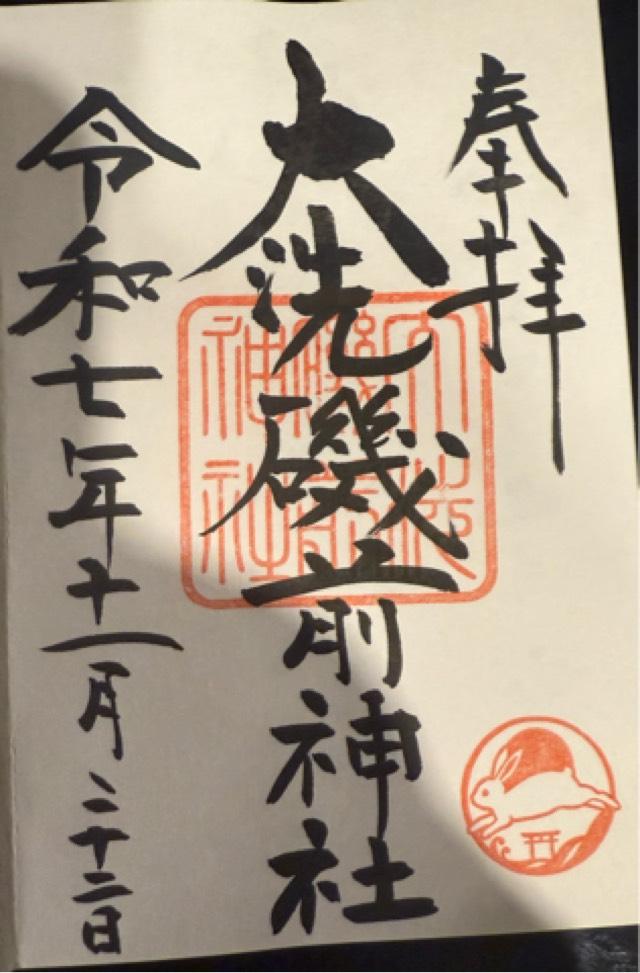 奉拝
大洗磯前神社
大洗磯前神社
令和七年十一月二十二日